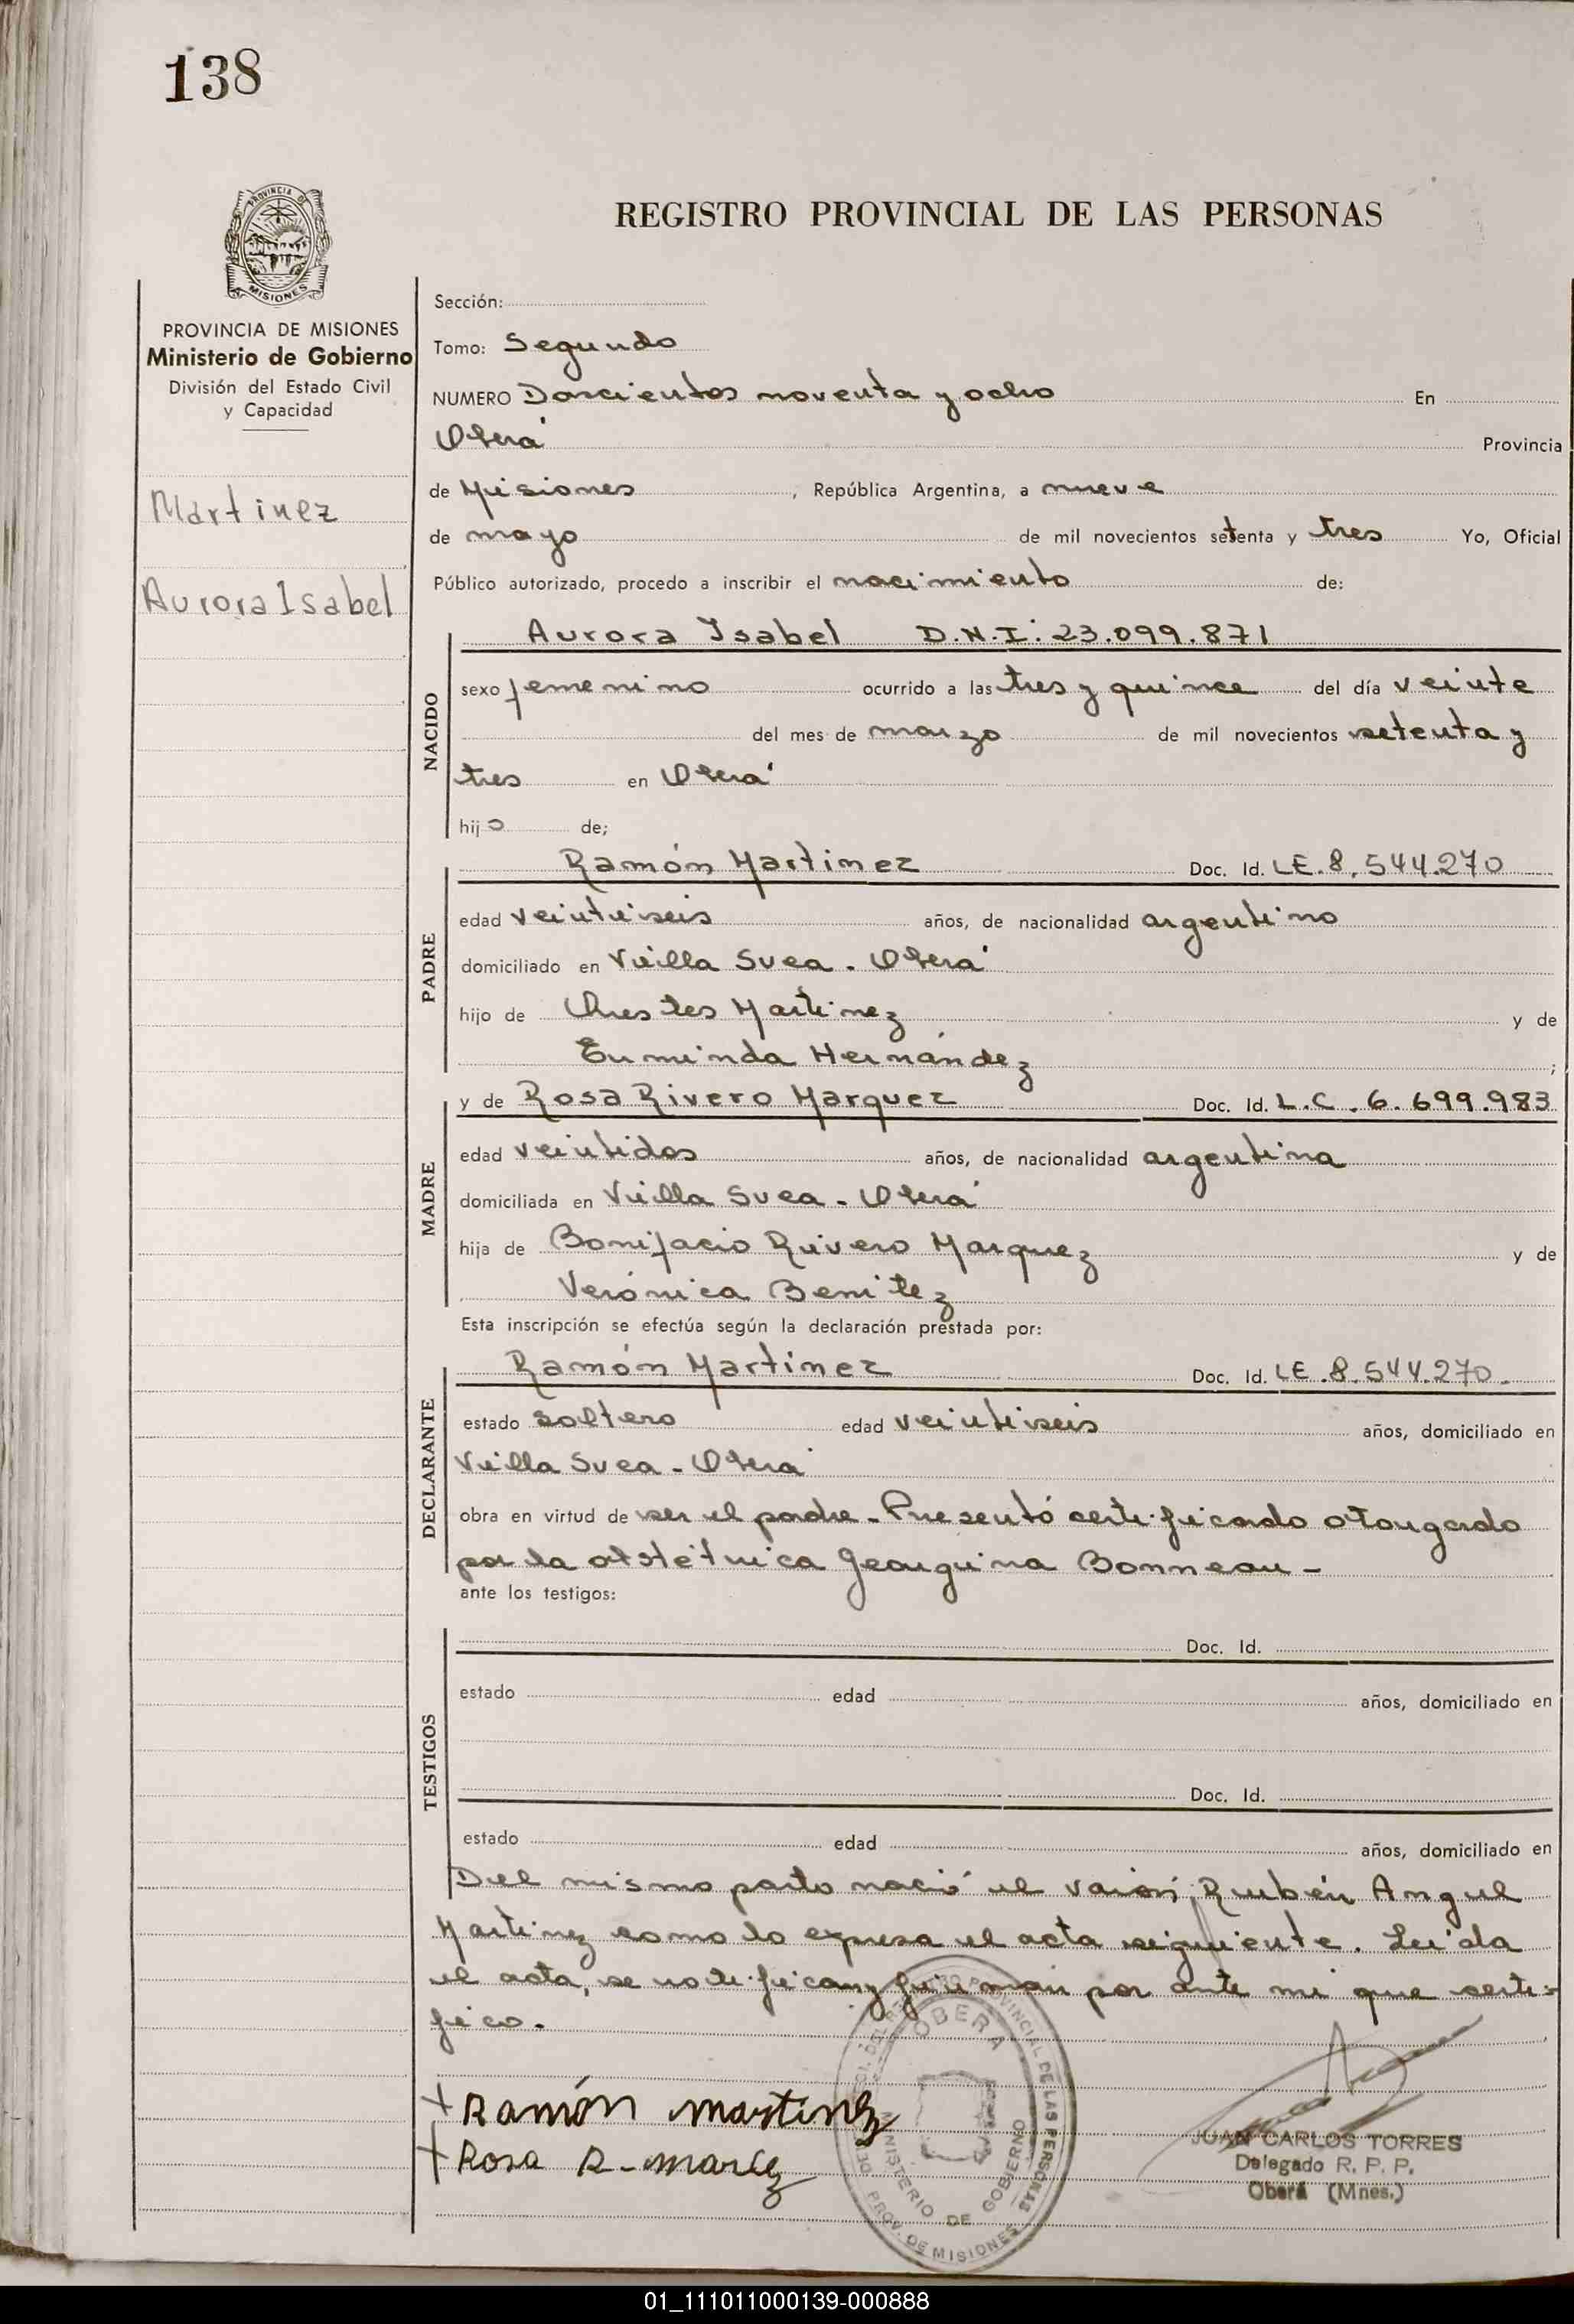 138
PROVINCIA DE
MISIONES
REGISTRO PROVINCIAL DE LAS PERSONAS
PROVINCIA DE MISIONES
Ministerio de Gobierno
División del Estado Civil
y Capacidad
Martinez
Aurora Isabel
Sección:
Tomo: Segundo
NUMERO Doscientos noventa y ocho En
Oberá Provincia
de Misiones, República Argentina, a nueve
de mayo de mil novecientos setenta y tres Yo, Oficial
Público autorizado, procedo a inscribir el nacimiento de:
NACIDO
Aurora Isabel D.N.I: 23.099.871
sexo femenino ocurrido a las tres y quince del día veinte
del mes de marzo de mil novecientos setenta y
tres en Oberá
hijo de;
PADRE
Ramón Martinez Doc. Id. LE.8.544.270
edad veintiseis años, de nacionalidad argentino
domiciliado en Villa Svea - Oberá
hijo de Orestes Martinez y de
Erminda Hernández;
MADRE
y de Rosa Rivero Marquez Doc. Id. L.C. 6.699.983
edad veintidos años, de nacionalidad argentina
domiciliada en Villa Svea - Oberá
hija de Bonifacio Rivero Marquez y de
Verónica Benitez
Esta inscripción se efectúa según la declaración prestada por:
DECLARANTE
Ramón Martinez Doc. Id. LE.8.544.270.
estado soltero edad veintiseis años, domiciliado en
Villa Svea - Oberá
obra en virtud de ser el padre - Presentó certificado otorgado
por la obstétrica Georgina Bonneau -
ante los testigos:
TESTIGOS
Doc. Id.
estado edad años, domiciliado en
Doc. Id.
estado edad años, domiciliado en
Del mismo parto nació el varón, Rubén Angel
Martinez como lo expresa el acta siguiente. Leida
el acta, se notifican y firman por ante mi que certi-
fico.
+ Ramón Martinez
+ Rosa R. Marqz
OBERA
PROVINCIAL DE LAS PERSONAS
MINISTERIO DE GOBIERNO
PROV. DE MISIONES
JUAN CARLOS TORRES
Delegado R. P. P.
Oberá (Mnes.)
01_111011000139-000888